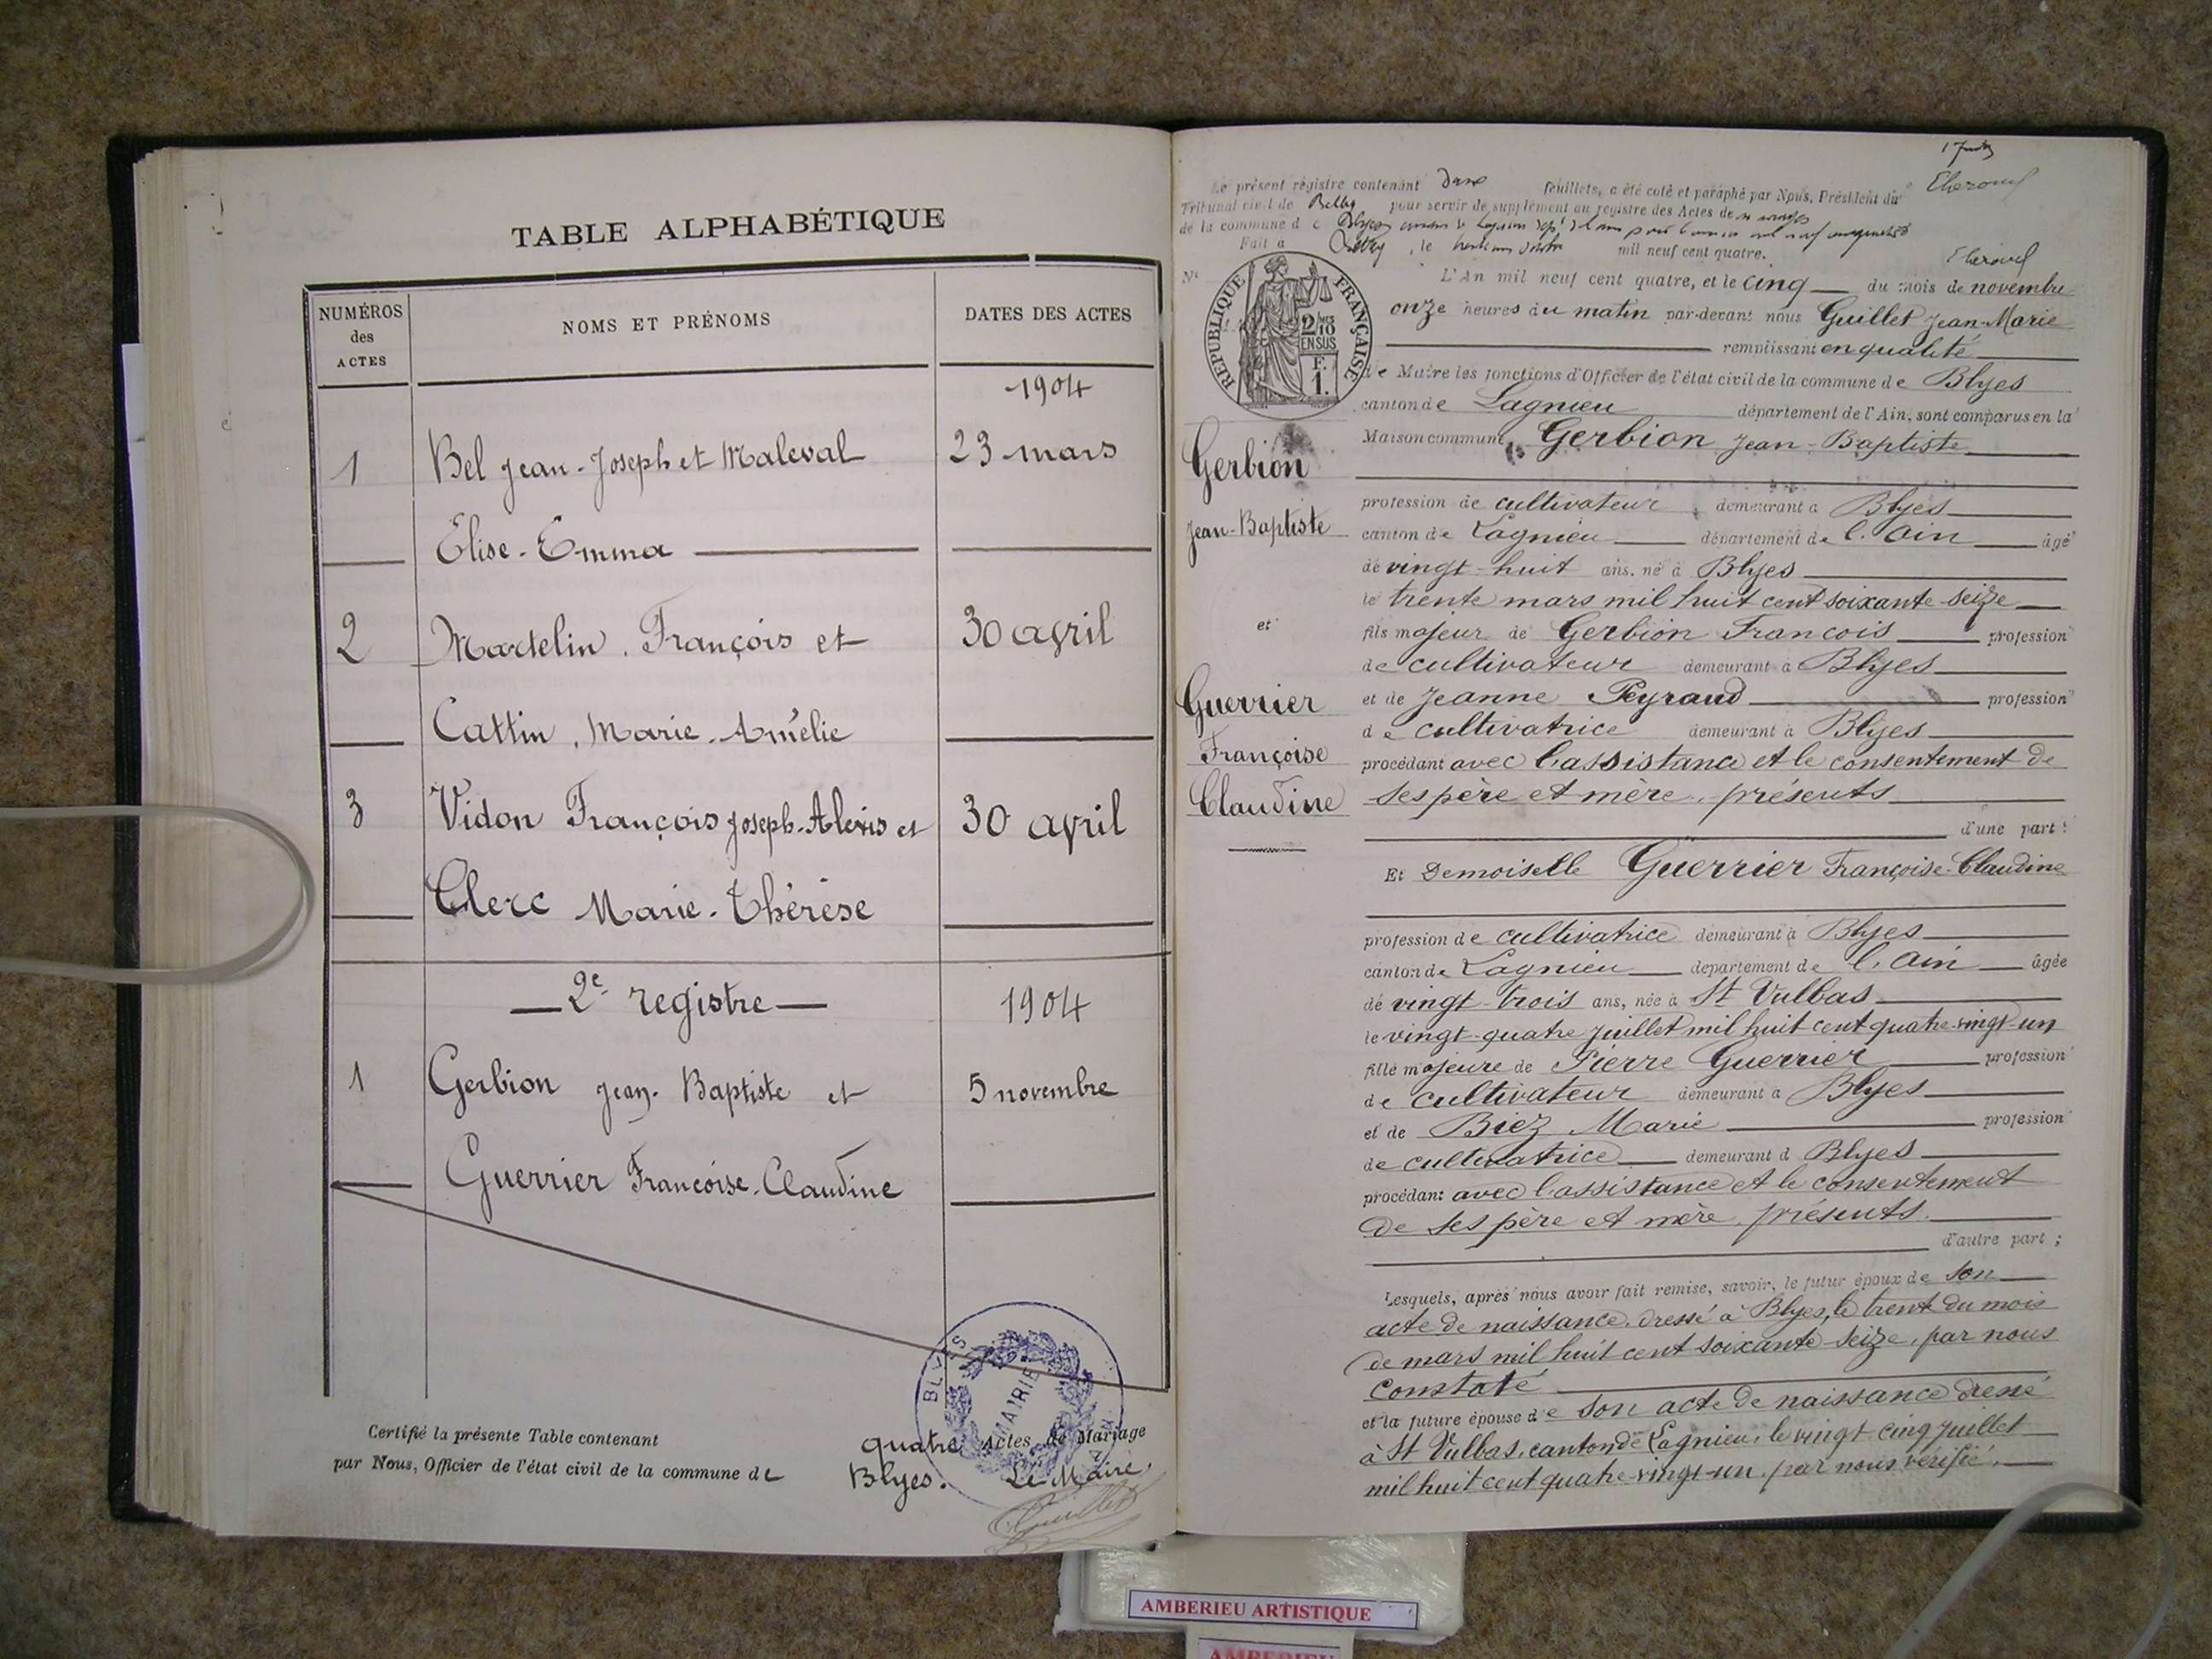 TABLE ALPHABÉTIQUE
NUMÉROS des ACTES
NOMS ET PRÉNOMS
DATES DES ACTES
1904
1 Bel Jean-Joseph et Maleval 23 mars
Elise-Emma
2 Martelin, François et 30 avril
Cattin, Marie-Amélie
3 Vidon François Joseph-Alexis et 30 avril
Clerc Marie-Thérèse
2e registre 1904
1 Gerbion Jean-Baptiste et 5 novembre
Guerrier Françoise-Claudine
Certifié la présente Table contenant quatre Actes de Mariage
par Nous, Officier de l'état civil de la commune de Blyes. Le Maire,
BLYES
MAIRIE
Guillet
Le présent registre contenant deux feuillets, a été coté et paraphé par Nous, Président du
Tribunal civil de Belley pour servir de supplément au registre des Actes de mariages
de la commune de Blyes
Fait à Belley, le mil neuf cent quatre.
RÉPUBLIQUE FRANÇAISE
2/10 EN SUS
F. 1.
N°
L'An mil neuf cent quatre, et le cinq du mois de novembre
onze heures du matin par-devant nous Guillet Jean-Marie
remplissant en qualité
de Maire les fonctions d'Officier de l'état civil de la commune de Blyes
canton de Lagnieu département de l'Ain, sont comparus en la
Maison commune, Gerbion Jean-Baptiste
Gerbion
Jean-Baptiste
et
Guerrier
Françoise
Claudine
profession de cultivateur, demeurant à Blyes
canton de Lagnieu département de l'Ain âgé
de vingt-huit ans, né à Blyes
le trente mars mil huit cent soixante-seize
fils majeur de Gerbion François profession
de cultivateur demeurant à Blyes
et de Jeanne Peyraud profession
de cultivatrice demeurant à Blyes
procédant avec l'assistance et le consentement de
ses père et mère, présents
d'une part;
Et Demoiselle Guerrier Françoise-Claudine
profession de cultivatrice demeurant à Blyes
canton de Lagnieu département de l'Ain âgée
de vingt-trois ans, née à St Vulbas
le vingt-quatre juillet mil huit cent quatre-vingt-un
fille majeure de Pierre Guerrier profession
de cultivateur demeurant à Blyes
et de Biez Marie profession
de cultivatrice demeurant à Blyes
procédant avec l'assistance et le consentement
de ses père et mère, présents.
d'autre part;
Lesquels, après nous avoir fait remise, savoir, le futur époux de son
acte de naissance, dressé à Blyes, le trente du mois
de mars mil huit cent soixante-seize, par nous
constaté
et la future épouse de son acte de naissance dressé
à St Vulbas, canton de Lagnieu, le vingt-cinq juillet
mil huit cent quatre-vingt-un, par nous vérifié,
AMBERIEU ARTISTIQUE
AMBERIEU